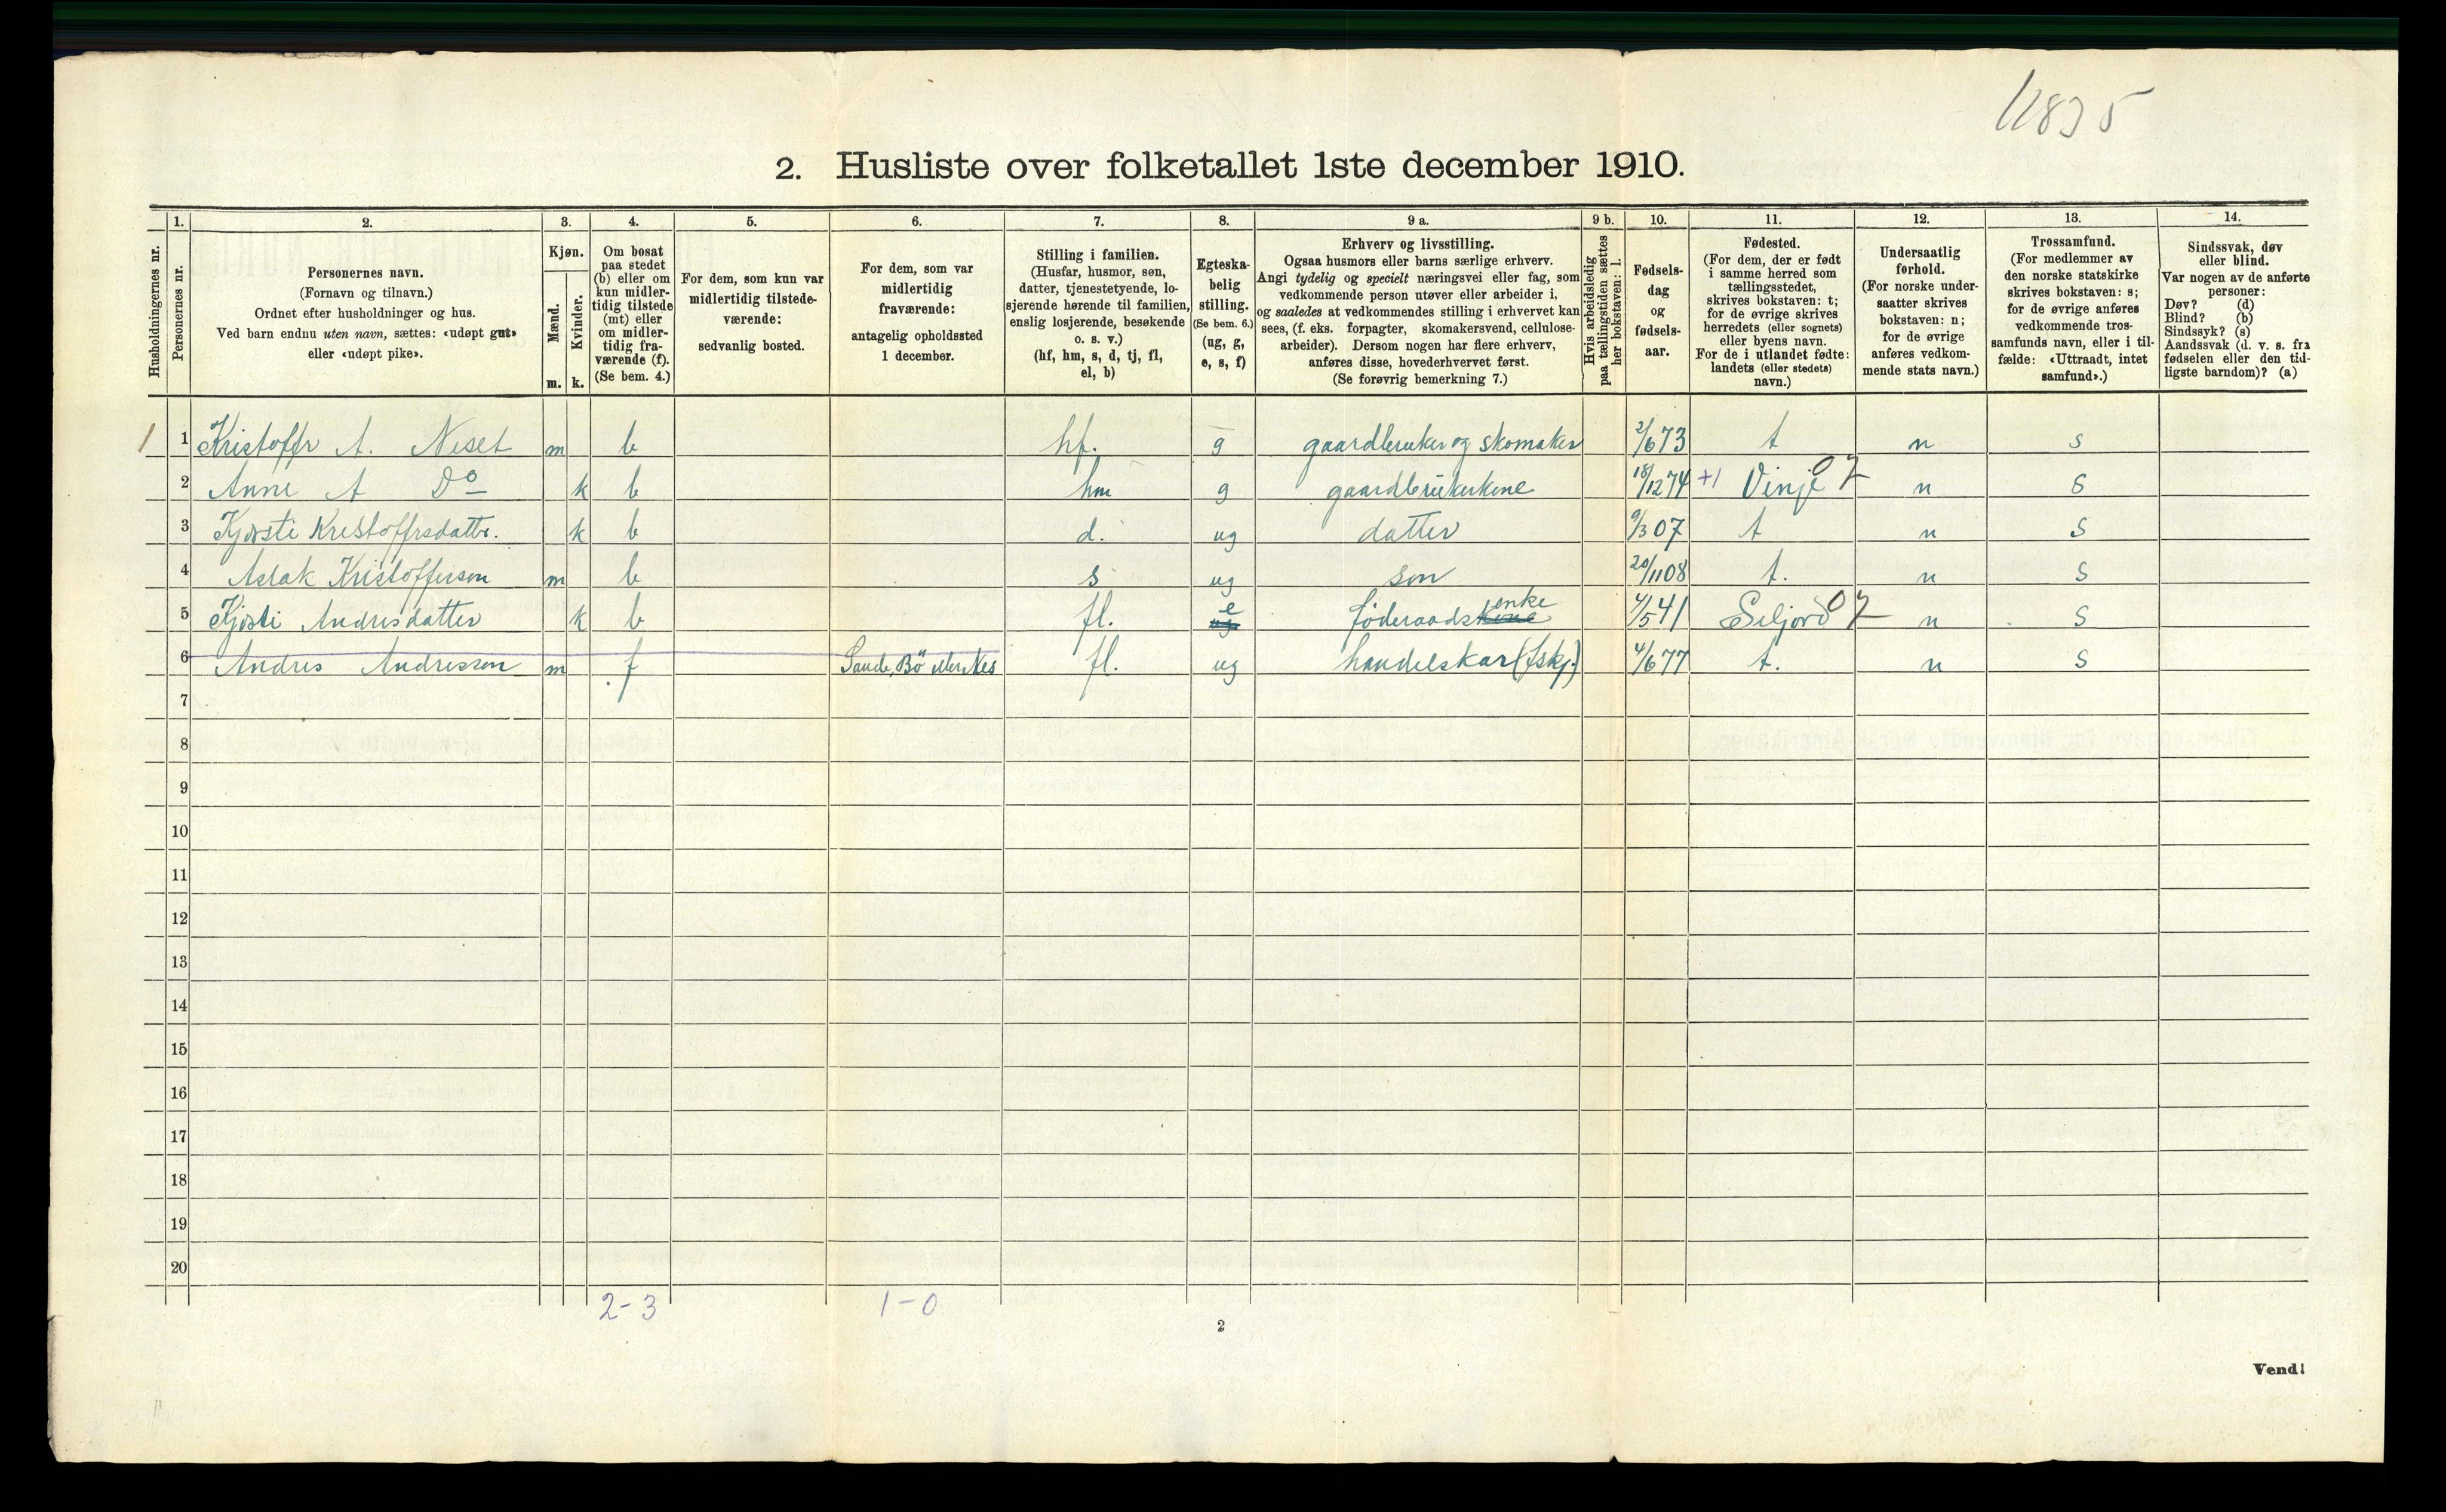 11835
2. Husliste over folketallet 1ste december 1910.
Husholdningernes nr.
1.
Personernes nr.
2.
Personernes navn.
(Fornavn og tilnavn.)
Ordnet efter husholdninger og hus.
Ved barn endnu uten navn, sættes: «udøpt gut»
eller «udøpt pike».
3.
Kjøn.
Mænd.
Kvinder.
m. k.
4.
Om bosat
paa stedet
(b) eller om
kun midler-
tidig tilstede
(mt) eller
om midler-
tidig fra-
værende (f).
(Se bem. 4.)
5.
For dem, som kun var
midlertidig tilstede-
værende:
sedvanlig bosted.
6.
For dem, som var
midlertidig
fraværende:
antagelig opholdssted
1 december.
7.
Stilling i familien.
(Husfar, husmor, søn,
datter, tjenestetyende, lo-
sjerende hørende til familien,
enslig losjerende, besøkende
o. s. v.)
(hf, hm, s, d, tj, fl,
el, b)
8.
Egteska-
belig
stilling.
(Se bem. 6.)
(ug, g,
e, s, f)
9 a.
Erhverv og livsstilling.
Ogsaa husmors eller barns særlige erhverv.
Angi tydelig og specielt næringsvei eller fag, som
vedkommende person utøver eller arbeider i,
og saaledes at vedkommendes stilling i erhvervet kan
sees, (f. eks. forpagter, skomakersvend, cellulose-
arbeider). Dersom nogen har flere erhverv,
anføres disse, hovederhvervet først.
(Se forøvrig bemerkning 7.)
9 b.
Hvis arbeidsledig
paa tællingstiden sættes
her bokstaven: l.
10.
Fødsels-
dag
og
fødsels-
aar.
11.
Fødested.
(For dem, der er født
i samme herred som
tællingsstedet,
skrives bokstaven: t;
for de øvrige skrives
herredets (eller sognets)
eller byens navn.
For de i utlandet fødte:
landets (eller stedets)
navn.)
12.
Undersaatlig
forhold.
(For norske under-
saatter skrives
bokstaven: n;
for de øvrige
anføres vedkom-
mende stats navn.)
13.
Trossamfund.
(For medlemmer av
den norske statskirke
skrives bokstaven: s;
for de øvrige anføres
vedkommende tros-
samfunds navn, eller i til-
fælde: «Uttraadt, intet
samfund».)
14.
Sindssvak, døv
eller blind.
Var nogen av de anførte
personer:
Døv? (d)
Blind? (b)
Sindssyk? (s)
Aandssvak (d. v. s. fra
fødselen eller den tid-
ligste barndom)? (a)
1 1 Kristoffr A. Neset m b hf. g gaardbruker og skomaker 2/6 73 t n s
2 Anne A Do k b hm g gaardbrukerkone 18/12 74 +1 Vinje 07 n s
3 Kjersti Kristoffrsdattr. k b d. ug datter 9/3 07 t n s
4 Aslak Kristofferson m b s ug søn 20/11 08 t. n s
5 Kjersti Andrisdatter k b fl. ug e føderaadskone enke 4/5 41 Seljord 07 n s
6 Andris Andresson m f Sande, Bø fl. ug handelskar (fskj.) 4/6 77 t. n s
7
8
9
10
11
12
13
14
15
16
17
18
19
20
2-3 1-0
2
Vend!